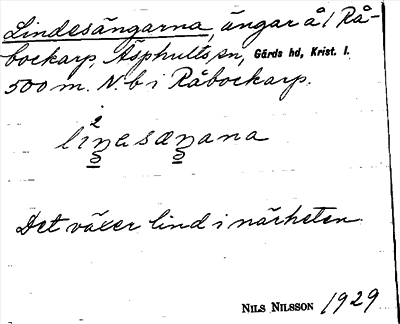 Lindesängarna, ängar å 1 Rå-
bockarp, Äsphults sn, Gärds hd, Krist. l.
500 m. N. b i Råbockarp.
Det växer lind i närheten.
NILS NILSSON 1929